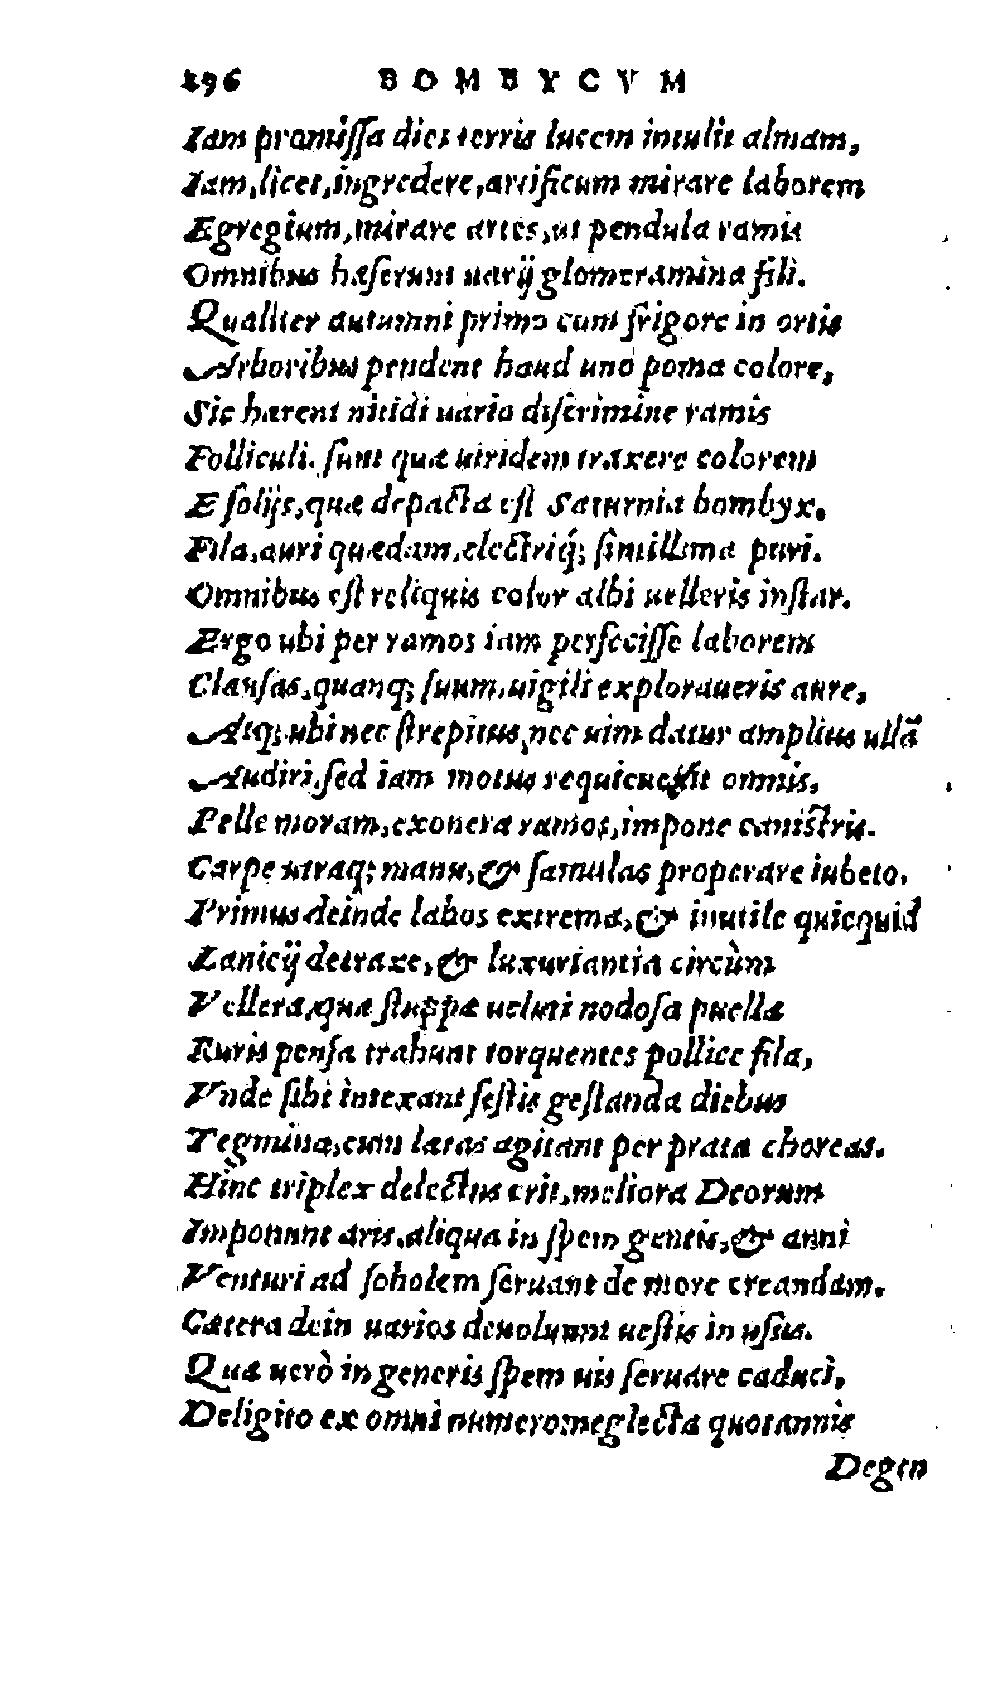 296 BOMBYCVM
Iam promissa dies terris lucem intulit almam,
Iam, licet, ingredere, artificum mirare laborem
Egregium, mirare artes, ut pendula ramis
Omnibus hæserunt uarij glomeramina fili.
Qualiter autumni primo cum frigore in ortis
Arboribus pendent haud uno poma colore,
Sic hærent nitidi uario discrimine ramis
Folliculi. sunt quæ uiridem traxere colorem
E folijs, quæ depacta est Saturnia bombyx.
Fila, auri quædam, electriq́; simillima puri.
Omnibus est reliquis color albi uelleris instar.
Ergo ubi per ramos iam perfecisse laborem
Clausas, quanq; suum, uigili exploraueris aure,
Atq; ubi nec strepitus, nec uim datur amplius ullã
Audiri, sed iam motus requieuerit omnis,
Pelle moram, exonera ramos, impone canistris.
Carpe utraq; manu, & famulas properare iubeto.
Primus deinde labos extrema, & inutile quicquid
Lanicij detraxe, & luxuriantia circùm
Vellera, quæ stuppæ ueluti nodosa puellæ
Ruris pensa trahunt torquentes pollice fila,
Vnde sibi intexant festis gestanda diebus
Tegmina, cum lætas agitant per prata choreas.
Hinc triplex delectus erit, meliora Deorum
Imponunt aris, aliqua in spem gentis, & anni
Venturi ad sobolem seruant de more creandam.
Cætera dein uarios deuoluunt uestis in usus.
Quæ uerò in generis spem uis seruare caduci,
Deligito ex omni numero: neglecta quotannis
Degen